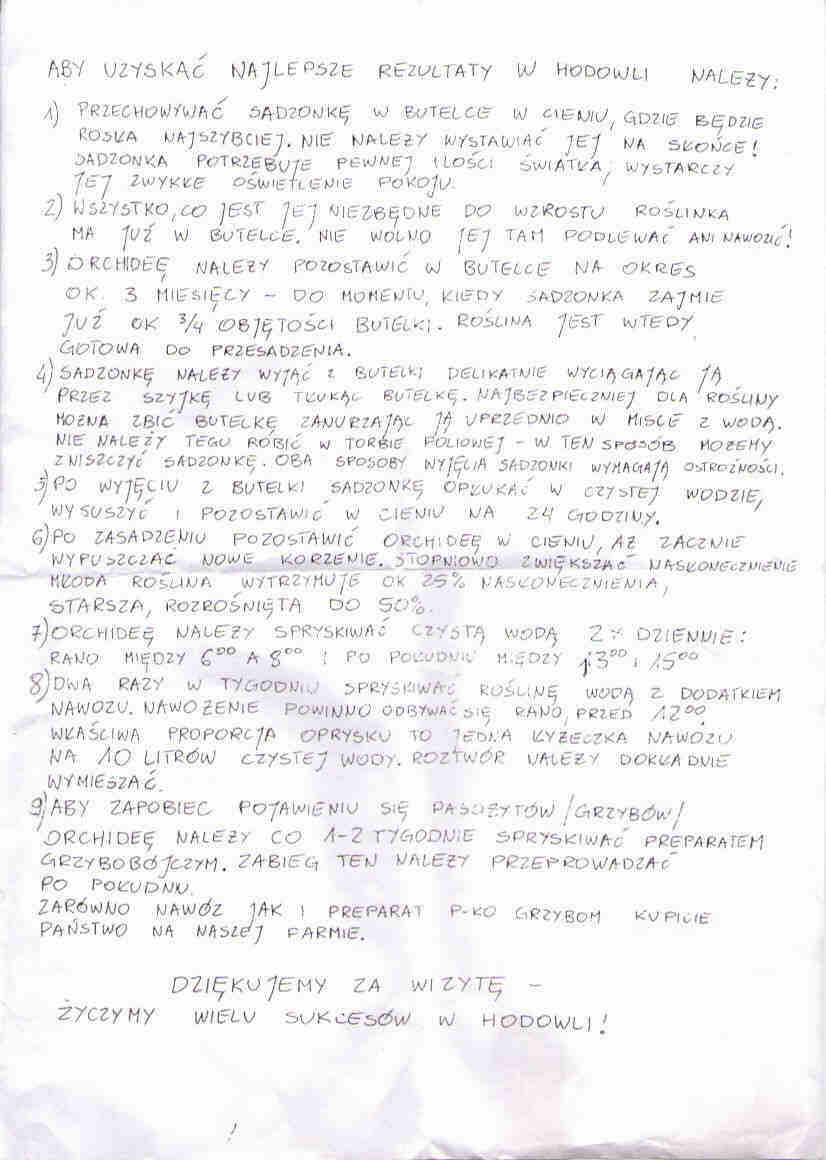 ABY UZYSKAĆ NAJLEPSZE REZULTATY W HODOWLI NALEŻY:
1) PRZECHOWYWAĆ SADZONKĘ W BUTELCE W CIENIU, GDZIE BĘDZIE
ROSŁA NAJSZYBCIEJ. NIE NALEŻY WYSTAWIAĆ JEJ NA SŁOŃCE!
SADZONKA POTRZEBUJE PEWNEJ ILOŚCI ŚWIATŁA, WYSTARCZY
JEJ ZWYKŁE OŚWIETLENIE POKOJU.
2) WSZYSTKO, CO JEST JEJ NIEZBĘDNE DO WZROSTU ROŚLINKA
MA JUŻ W BUTELCE. NIE WOLNO JEJ TAM PODLEWAĆ ANI NAWOZIĆ!
3) ORCHIDEĘ NALEŻY POZOSTAWIĆ W BUTELCE NA OKRES
OK. 3 MIESIĘCY – DO MOMENTU, KIEDY SADZONKA ZAJMIE
JUŻ OK 3/4 OBJĘTOŚCI BUTELKI. ROŚLINA JEST WTEDY
GOTOWA DO PRZESADZENIA.
4) SADZONKĘ NALEŻY WYJĄĆ Z BUTELKI DELIKATNIE WYCIĄGAJĄC JĄ
PRZEZ SZYJKĘ LUB TŁUKĄC BUTELKĘ. NAJBEZPIECZNIEJ DLA ROŚLINY
MOŻNA ZBIĆ BUTELKĘ ZANURZAJĄC JĄ UPRZEDNIO W MISCE Z WODĄ.
NIE NALEŻY TEGO ROBIĆ W TORBIE FOLIOWEJ – W TEN SPOSÓB MOŻEMY
ZNISZCZYĆ SADZONKĘ. OBA SPOSOBY WYJĘCIA SADZONKI WYMAGAJĄ OSTROŻNOŚCI.
5) PO WYJĘCIU Z BUTELKI SADZONKĘ OPŁUKAĆ W CZYSTEJ WODZIE,
WYSUSZYĆ I POZOSTAWIĆ W CIENIU NA 24 GODZINY.
6) PO ZASADZENIU POZOSTAWIĆ ORCHIDEĘ W CIENIU, AŻ ZACZNIE
WYPUSZCZAĆ NOWE KORZENIE. STOPNIOWO ZWIĘKSZAĆ NASŁONECZNIENIE
MŁODA ROŚLINA WYTRZYMUJE OK 25% NASŁONECZNIENIA,
STARSZA, ROZROŚNIĘTA DO 50%.
7) ORCHIDEĘ NALEŻY SPRYSKIWAĆ CZYSTĄ WODĄ 2× DZIENNIE:
RANO MIĘDZY 6⁰⁰ A 8⁰⁰ I PO POŁUDNIU MIĘDZY 13⁰⁰ i 15⁰⁰
8) DWA RAZY W TYGODNIU SPRYSKIWAĆ ROŚLINĘ WODĄ Z DODATKIEM
NAWOZU. NAWOŻENIE POWINNO ODBYWAĆ SIĘ RANO, PRZED 12⁰⁰.
WŁAŚCIWA PROPORCJA OPRYSKU TO JEDNA ŁYŻECZKA NAWOZU
NA 10 LITRÓW CZYSTEJ WODY. ROZTWÓR NALEŻY DOKŁADNIE
WYMIESZAĆ.
9) ABY ZAPOBIEC POJAWIENIU SIĘ PASOŻYTÓW /GRZYBÓW/
ORCHIDEĘ NALEŻY CO 1-2 TYGODNIE SPRYSKIWAĆ PREPARATEM
GRZYBOBÓJCZYM. ZABIEG TEN NALEŻY PRZEPROWADZAĆ
PO POŁUDNIU.
ZARÓWNO NAWÓZ JAK I PREPARAT P-KO GRZYBOM KUPICIE
PAŃSTWO NA NASZEJ FARMIE.
DZIĘKUJEMY ZA WIZYTĘ –
ŻYCZYMY WIELU SUKCESÓW W HODOWLI!